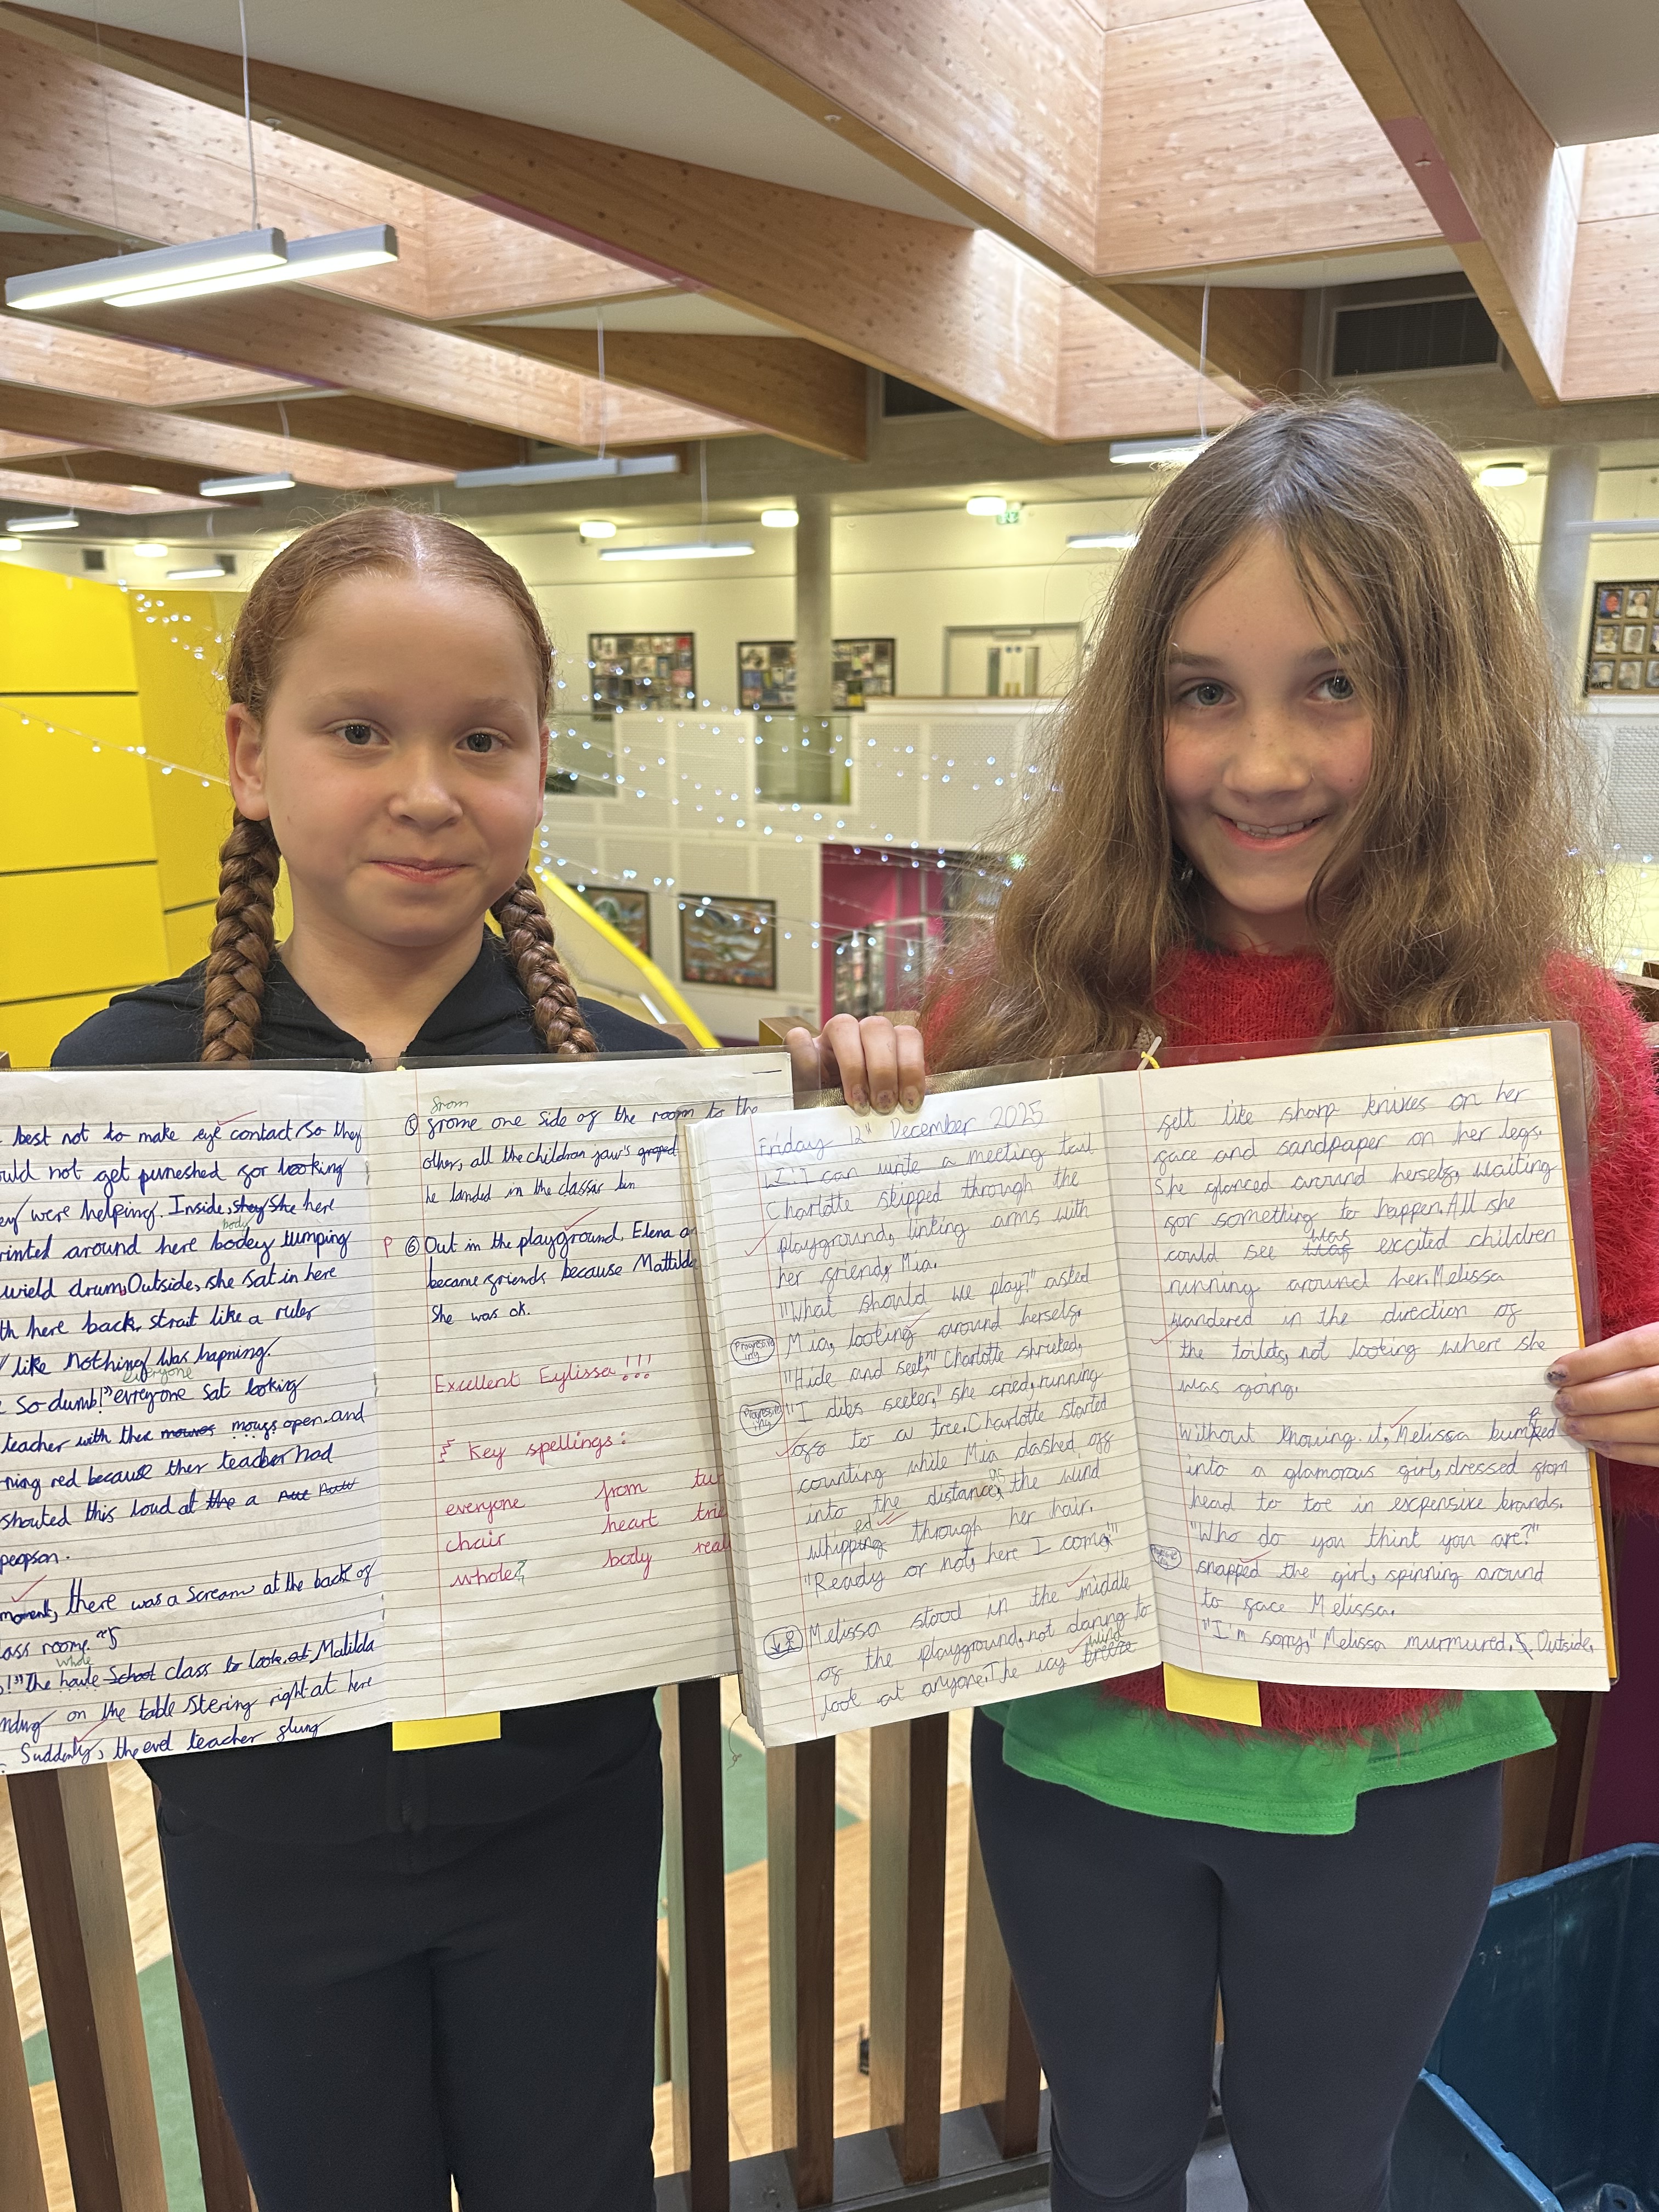 best not to make eye contact so they
uld not get puneshed for looking
ey were helping. Inside, she here
body
rinted around here bodey tumping
wield drum, Outside, she sat in here
th here back, strait like a ruler
like nothing was hapning.
everyone
So dumb!" evreyone sat looking
teacher with thex mouses mougs open and
rning red because ther teacher had
shouted this loud at the a
peapson.
moment, there was a scream at the back of
ass room.
whole
!" The howle School class to look at Matilda
nding on the table stering right at here
Suddenly, the evel teacher flung
from
⑤ frome one side of the room to the
other, all the children jaw's
he landed in the classas bin
P ⑥ Out in the playground, Elena a
became friends because Mattilda
She was ok.
Excellent Eylissa!!!
Key spellings:
everyone from tur
chair heart trie
whole? body real
Friday 12th December 2025
L.I: I can write a meeting tail
Charlotte skipped through the
playground, linking arms with
her friend, Mia.
"What should we play?" asked
Mia, looking around herself.
"Hide and seek!" Charlotte shrieked,
"I dibs seeker," she cried, running
off to a tree. Charlotte started
counting while Mia dashed off
as
into the distance, the wind
ed
whipping through her hair.
"Ready or not, here I come!"
Melissa stood in the middle
of the playground, not daring to
wind
look at anyone. The icy breeze
felt like sharp knives on her
face and sandpaper on her legs.
She glanced around herself, waiting
for something to happen. All she
was
could see was excited children
running around her. Melissa
wandered in the direction of
the toilets, not looking where she
was going.
Without knowing it, Melissa bumped
into a glamorous girl, dressed from
head to toe in expensive brands.
"Who do you think you are?"
snapped the girl, spinning around
to face Melissa.
"I'm sorry," Melissa murmured. Outside,